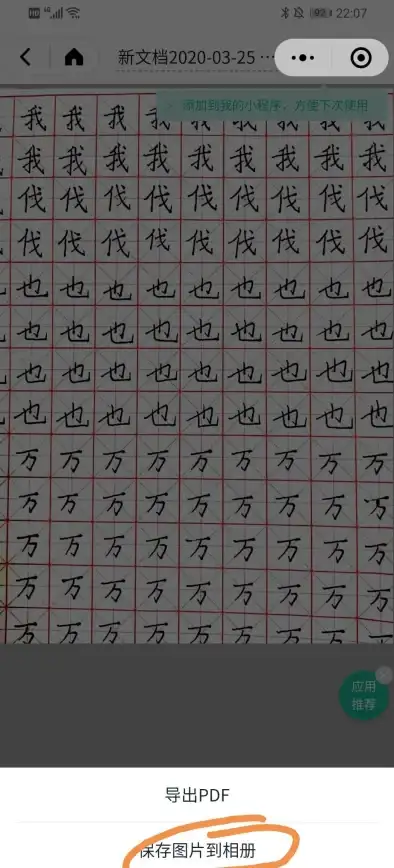 HD 4G 92 22:07
新文档2020-03-25 ···
添加到我的小程序，方便下次使用
我我我我我我我我我
我我我我我我我我我
伐伐伐伐伐伐伐伐伐
伐伐伐伐伐伐伐伐伐
也也也也也也也也也
也也也也也也也也也
也也也也也也也也也
也也也也也也也也也
万万万万万万万万万
万万万万万万万万万
万万万万万万万万万
万万万万万万万万万
万万万万万万万万
应用
推荐
导出PDF
保存图片到相册